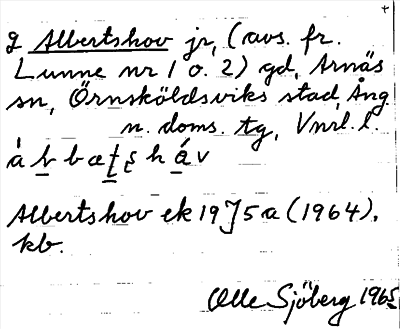 g Albertshov jr, (avs. fr.
Lunne nr 1 o. 2) gd, Arnäs
sn, Örnsköldsviks stad, Ång
n. doms. tg, Vnrl. l.
Albertshov ek 19J5a (1964),
kb.
Olle Sjöberg 1965